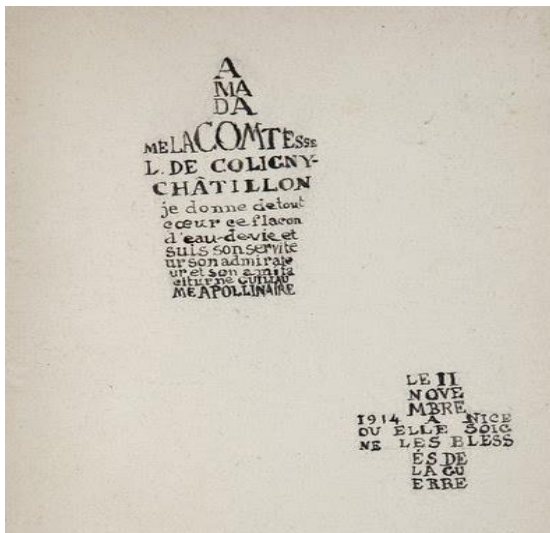 A
MA
DA
ME LA COMTESSE
L. DE COLIGNY-
CHÂTILLON
je donne de tout
cœur ce flacon
d'eau-de-vie et
suis son servite
ur son admirate
ur et son ami ta
citurne GUILLAU
ME APOLLINAIRE
LE 11
NOVE
MBRE
1914 A NICE
OU ELLE SOIG
NE LES BLESS
ÉS DE
LA GU
ERRE